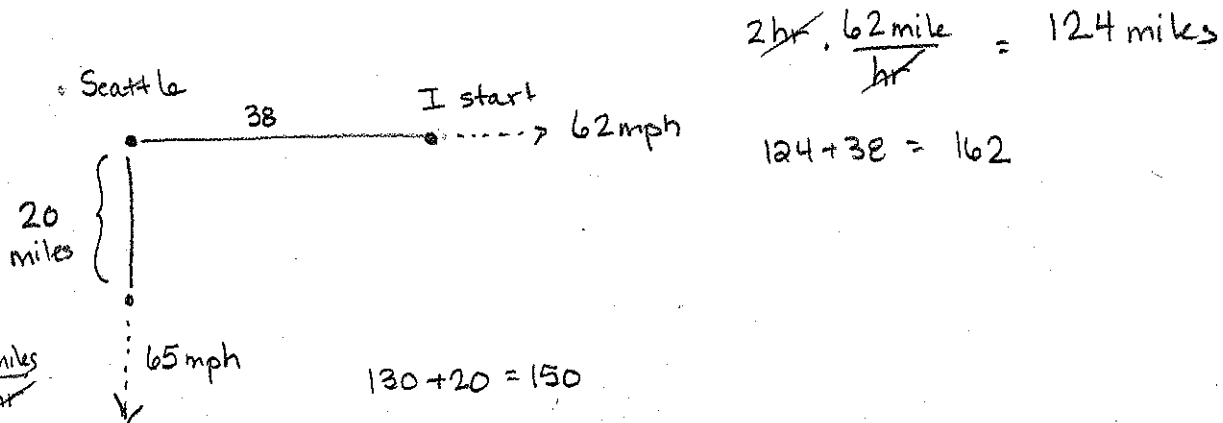 2hr . 62mile/hr = 124 miles
Seattle
38
I start
62mph
124 + 38 = 162
20
miles
65mph
130 + 20 = 150